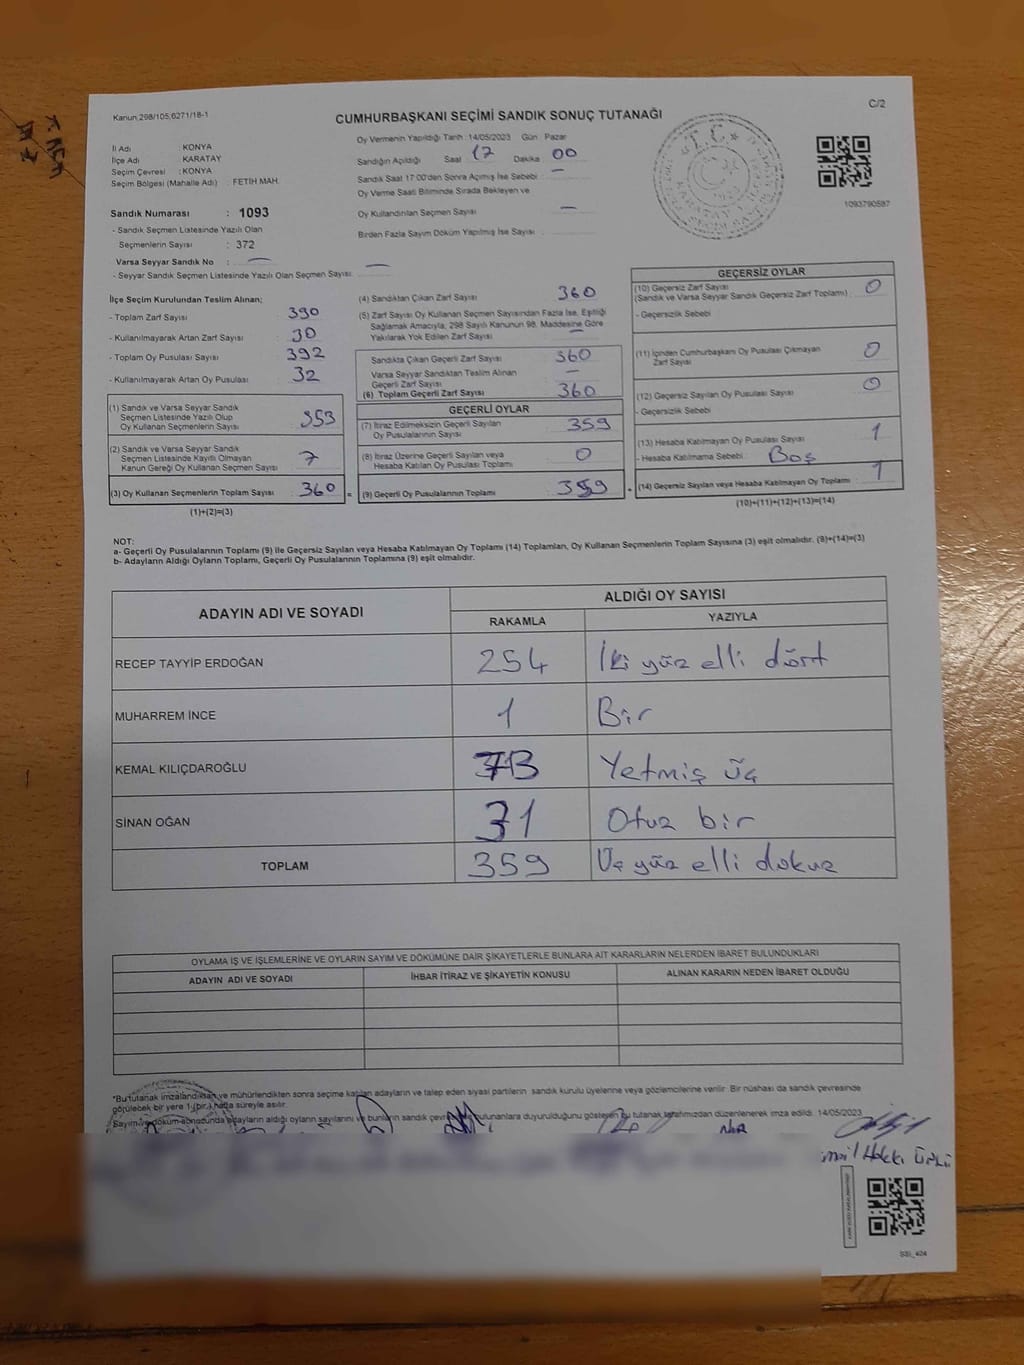 Kanun,298/105,6271/18-1
CUMHURBAŞKANI SEÇİMİ SANDIK SONUÇ TUTANAĞI
C/2
İl Adı : KONYA
İlçe Adı : KARATAY
Seçim Çevresi : KONYA
Seçim Bölgesi (Mahalle Adı) : FETİH MAH.
Oy Vermenin Yapıldığı Tarih :14/05/2023 Gün : Pazar
Sandığın Açıldığı Saat 17 Dakika 00
Sandık Saat 17:00'den Sonra Açılmış İse Sebebi : —
Oy Verme Saati Bitiminde Sırada Bekleyen ve
Oy Kullandırılan Seçmen Sayısı —
Birden Fazla Sayım Döküm Yapılmış İse Sayısı :
1093790587
Sandık Numarası : 1093
- Sandık Seçmen Listesinde Yazılı Olan
Seçmenlerin Sayısı : 372
Varsa Seyyar Sandık No : —
- Seyyar Sandık Seçmen Listesinde Yazılı Olan Seçmen Sayısı: —
İlçe Seçim Kurulundan Teslim Alınan;
- Toplam Zarf Sayısı 390
- Kullanılmayarak Artan Zarf Sayısı 30
- Toplam Oy Pusulası Sayısı 392
- Kullanılmayarak Artan Oy Pusulası 32
(1) Sandık ve Varsa Seyyar Sandık
Seçmen Listesinde Yazılı Olup
Oy Kullanan Seçmenlerin Sayısı : 353
(2) Sandık ve Varsa Seyyar Sandık
Seçmen Listesinde Kayıtlı Olmayan
Kanun Gereği Oy Kullanan Seçmen Sayısı : 7
(3) Oy Kullanan Seçmenlerin Toplam Sayısı : 360 =
(1)+(2)=(3)
(4) Sandıktan Çıkan Zarf Sayısı : 360
(5) Zarf Sayısı Oy Kullanan Seçmen Sayısından Fazla İse, Eşitliği
Sağlamak Amacıyla, 298 Sayılı Kanunun 98. Maddesine Göre
Yakılarak Yok Edilen Zarf Sayısı : —
Sandıkta Çıkan Geçerli Zarf Sayısı : 360
Varsa Seyyar Sandıktan Teslim Alınan
Geçerli Zarf Sayısı : —
(6) Toplam Geçerli Zarf Sayısı : 360
GEÇERLİ OYLAR
(7) İtiraz Edilmeksizin Geçerli Sayılan
Oy Pusulalarının Sayısı : 359
(8) İtiraz Üzerine Geçerli Sayılan veya
Hesaba Katılan Oy Pusulası Toplamı : 0
(9) Geçerli Oy Pusulalarının Toplamı : 359 +
GEÇERSİZ OYLAR
(10) Geçersiz Zarf Sayısı
(Sandık ve Varsa Seyyar Sandık Geçersiz Zarf Toplamı) : 0
- Geçersizlik Sebebi :
(11) İçinden Cumhurbaşkanı Oy Pusulası Çıkmayan
Zarf Sayısı : 0
(12) Geçersiz Sayılan Oy Pusulası Sayısı : 0
- Geçersizlik Sebebi :
(13) Hesaba Katılmayan Oy Pusulası Sayısı : 1
- Hesaba Katılmama Sebebi : Boş
(14) Geçersiz Sayılan veya Hesaba Katılmayan Oy Toplamı : 1
(10)+(11)+(12)+(13)=(14)
NOT:
a- Geçerli Oy Pusulalarının Toplamı (9) ile Geçersiz Sayılan veya Hesaba Katılmayan Oy Toplamı (14) Toplamları, Oy Kullanan Seçmenlerin Toplam Sayısına (3) eşit olmalıdır. (9)+(14)=(3)
b- Adayların Aldığı Oyların Toplamı, Geçerli Oy Pusulalarının Toplamına (9) eşit olmalıdır.
ADAYIN ADI VE SOYADI ALDIĞI OY SAYISI
RAKAMLA YAZIYLA
RECEP TAYYİP ERDOĞAN 254 İki yüz elli dört
MUHARREM İNCE 1 Bir
KEMAL KILIÇDAROĞLU 73 Yetmiş üç
SİNAN OĞAN 31 Otuz bir
TOPLAM 359 Üç yüz elli dokuz
OYLAMA İŞ VE İŞLEMLERİNE VE OYLARIN SAYIM VE DÖKÜMÜNE DAİR ŞİKAYETLERLE BUNLARA AİT KARARLARIN NELERDEN İBARET BULUNDUKLARI
ADAYIN ADI VE SOYADI İHBAR İTİRAZ VE ŞİKAYETİN KONUSU ALINAN KARARIN NEDEN İBARET OLDUĞU
*Bu tutanak imzalandıktan ve mühürlendikten sonra seçime katılan adayların ve talep eden siyasi partilerin sandık kurulu üyelerine veya gözlemcilerine verilir. Bir nüshası da sandık çevresinde
görülecek bir yere 1 (bir) hafta süreyle asılır.
Sayım ve döküm esnasında adayların aldığı oyların sayılarını ve bunların sandık çevresinde bulunanlara duyurulduğunu gösteren bu tutanak tarafımızdan düzenlenerek imza edildi. 14/05/2023
SSİ_404